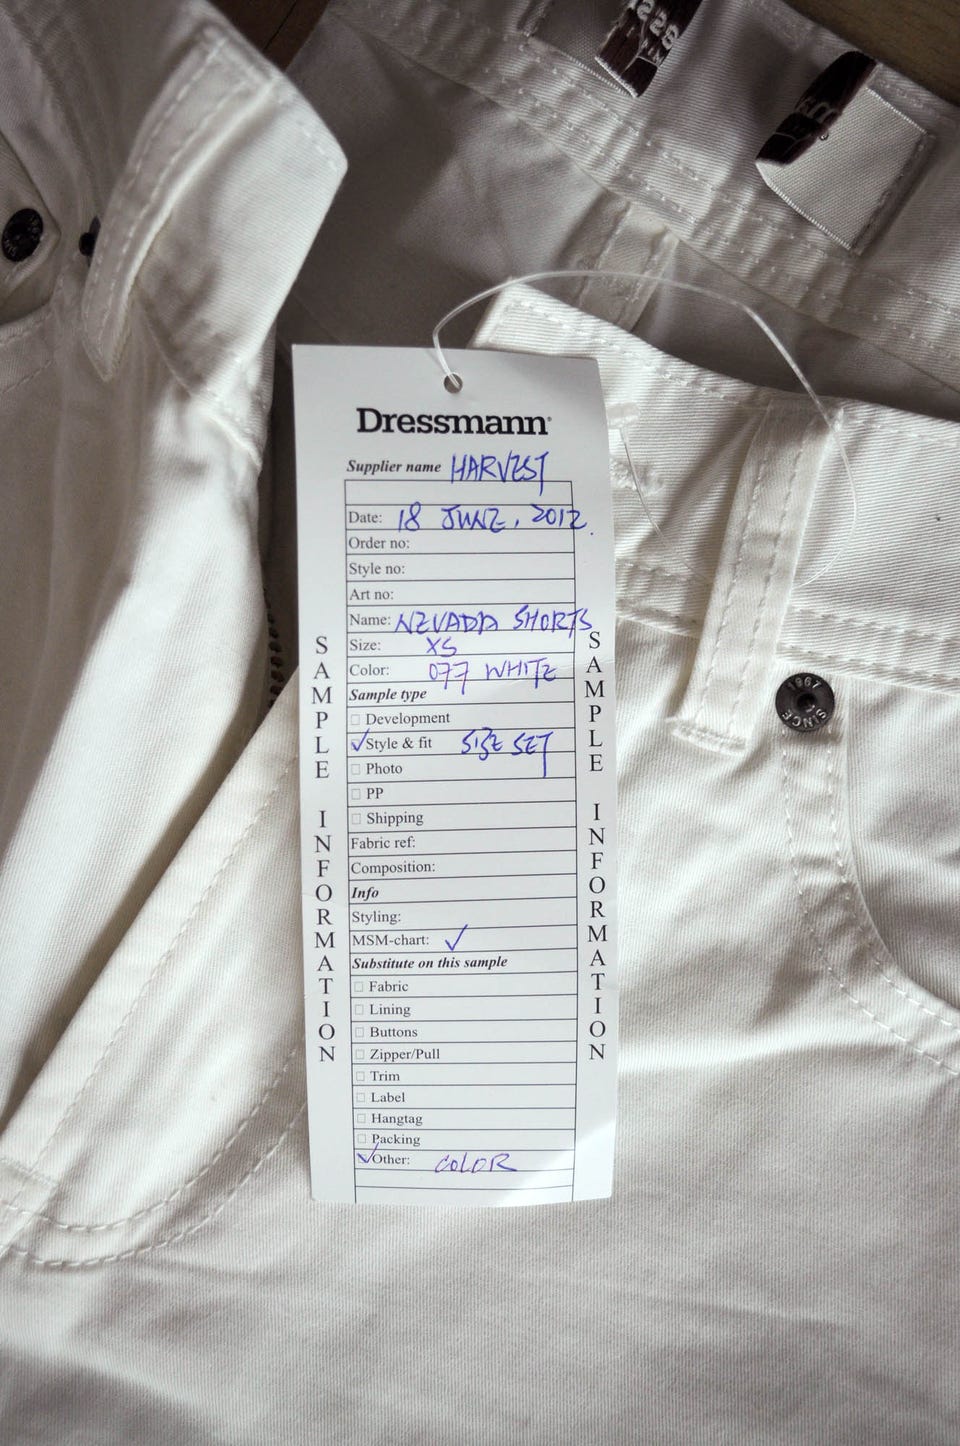 Dressmann®
Supplier name HARVEST
Date: 18 JUNE, 2012.
Order no:
Style no:
Art no:
Name: NEVADA SHORTS
Size: XS
Color: 077 WHITE
Sample type
Development
Style & fit SIZE SET
Photo
PP
Shipping
Fabric ref:
Composition:
Info
Styling:
MSM-chart:
Substitute on this sample
Fabric
Lining
Buttons
Zipper/Pull
Trim
Label
Hangtag
Packing
Other: COLOR
SAMPLE INFORMATION
SAMPLE INFORMATION
1967
SINCE